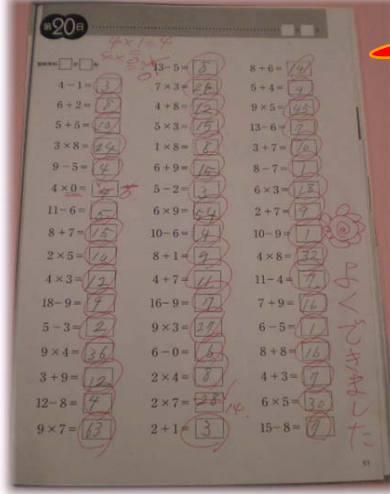 第20日
4×1=4
4−1=3
6+2=8
5+5=10
3×8=24
9−5=4
4×0=
11−6=5
8+7=15
2×5=10
4×3=12
18−9=9
5−3=2
9×4=36
3+9=12
12−8=4
9×7=63
13−5=8
7×3=
4+8=12
5×3=15
1×8=8
6+9=15
5−2=3
6×9=54
10−6=4
8+1=9
4+7=11
16−9=7
9×3=27
6−0=6
2×4=8
2×7=28 14
2+1=3
8+6=14
5+4=9
9×5=45
13−6=7
3+7=10
8−7=1
6×3=18
2+7=9
10−9=1
4×8=32
11−4=7
7+9=16
6−5=1
8+8=16
4+3=7
6×5=30
15−8=7
よくできました
51